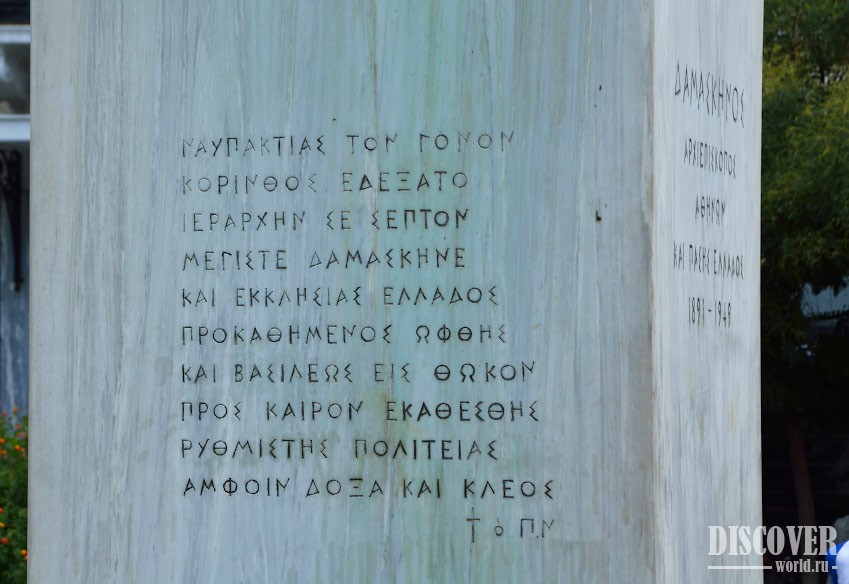 ΝΑΥΠΑΚΤΙΑΣ ΤΟΝ ΓΟΝΟΝ
ΚΟΡΙΝΘΟΣ ΕΔΕΞΑΤΟ
ΙΕΡΑΡΧΗΝ ΣΕ ΣΕΠΤΟΝ
ΜΕΓΙΣΤΕ ΔΑΜΑΣΚΗΝΕ
ΚΑΙ ΕΚΚΛΗΣΙΑΣ ΕΛΛΑΔΟΣ
ΠΡΟΚΑΘΗΜΕΝΟΣ ΩΦΘΗΣ
ΚΑΙ ΒΑΣΙΛΕΩΣ ΕΙΣ ΘΩΚΟΝ
ΠΡΟΣ ΚΑΙΡΟΝ ΕΚΑΘΕΣΘΗΣ
ΡΥΘΜΙΣΤΗΣ ΠΟΛΙΤΕΙΑΣ
ΑΜΦΟΙΝ ΔΟΞΑ ΚΑΙ ΚΛΕΟΣ
Τὸ Π.Ν
ΔΑΜΑΣΚΗΝΟΣ
ΑΡΧΙΕΠΙΣΚΟΠΟΣ
ΑΘΗΝΩΝ
ΚΑΙ ΠΑΣΗΣ ΕΛΛΑΔΟΣ
1891-1949
DISCOVER
world.ru